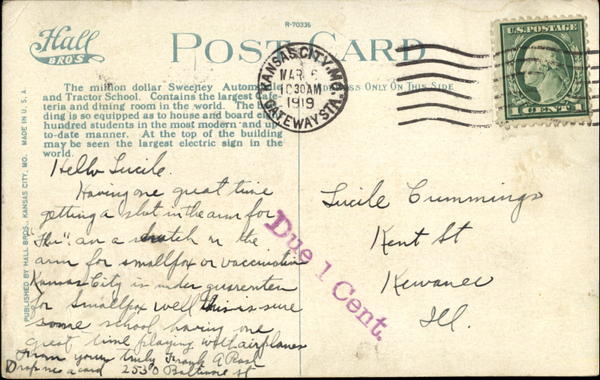 Hall
BRO'S
R-70335
POST CARD
The million dollar Sweeney Automobile
and Tractor School. Contains the largest Cafe-
teria and dining room in the world. The
ding is so equipped as to house and board
hundred students in the most modern and up-
to-date manner. At the top of the building
may be seen the largest electric sign in the
world.
ONLY ON THIS SIDE
KANSAS CITY, MO.
MAR 6
10 30 AM
1919
GATEWAY STA.
U.S. POSTAGE
1 CENT 1
PUBLISHED BY HALL BROS., KANSAS CITY, MO. MADE IN U.S.A.
Hello Lucile.
Having one great time
getting a shot in the arm for
"Flu" an a scratch in the
arm for smallpox or vaccination
Kansas City is under quarenten
for Smallpox well this is sure
some school having one
great time playing with airplanes
From your truly Frank A
Drop me a card 2530 Baltimore St
Due 1 Cent.
Lucile Cummings
Kent St
Kewanee
Ill.